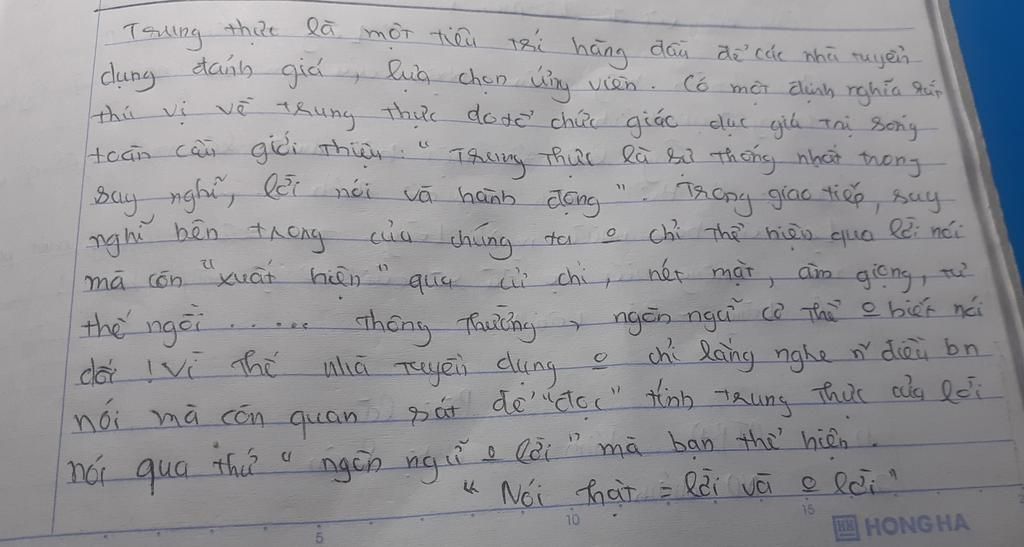 Trung thực là một tiêu trí hàng đầu để các nhà tuyển
dụng đánh giá, lựa chọn ứng viên. Có một định nghĩa rất
thú vị về trung thực do tổ chức giác dục giá trị sống
toàn cầu giới thiệu: "Trung thực là sự thống nhất trong
suy nghĩ, lời nói và hành động". Trong giao tiếp, suy
nghĩ bên trong của chúng ta o chỉ thể hiện qua lời nói
mà còn "xuất hiện" qua cử chỉ, nét mặt, âm giọng, tư
thế ngồi ..... Thông thường, ngôn ngữ cơ thể o biết nói
dối! Vì thế nhà tuyển dụng o chỉ lắng nghe n~ điều bn
nói mà còn quan sát để "đọc" tính trung thực của lời
nói qua thứ "ngôn ngữ o lời" mà bạn thể hiện.
"Nói thật = lời và o lời"
5 10 15
HH HONG HA